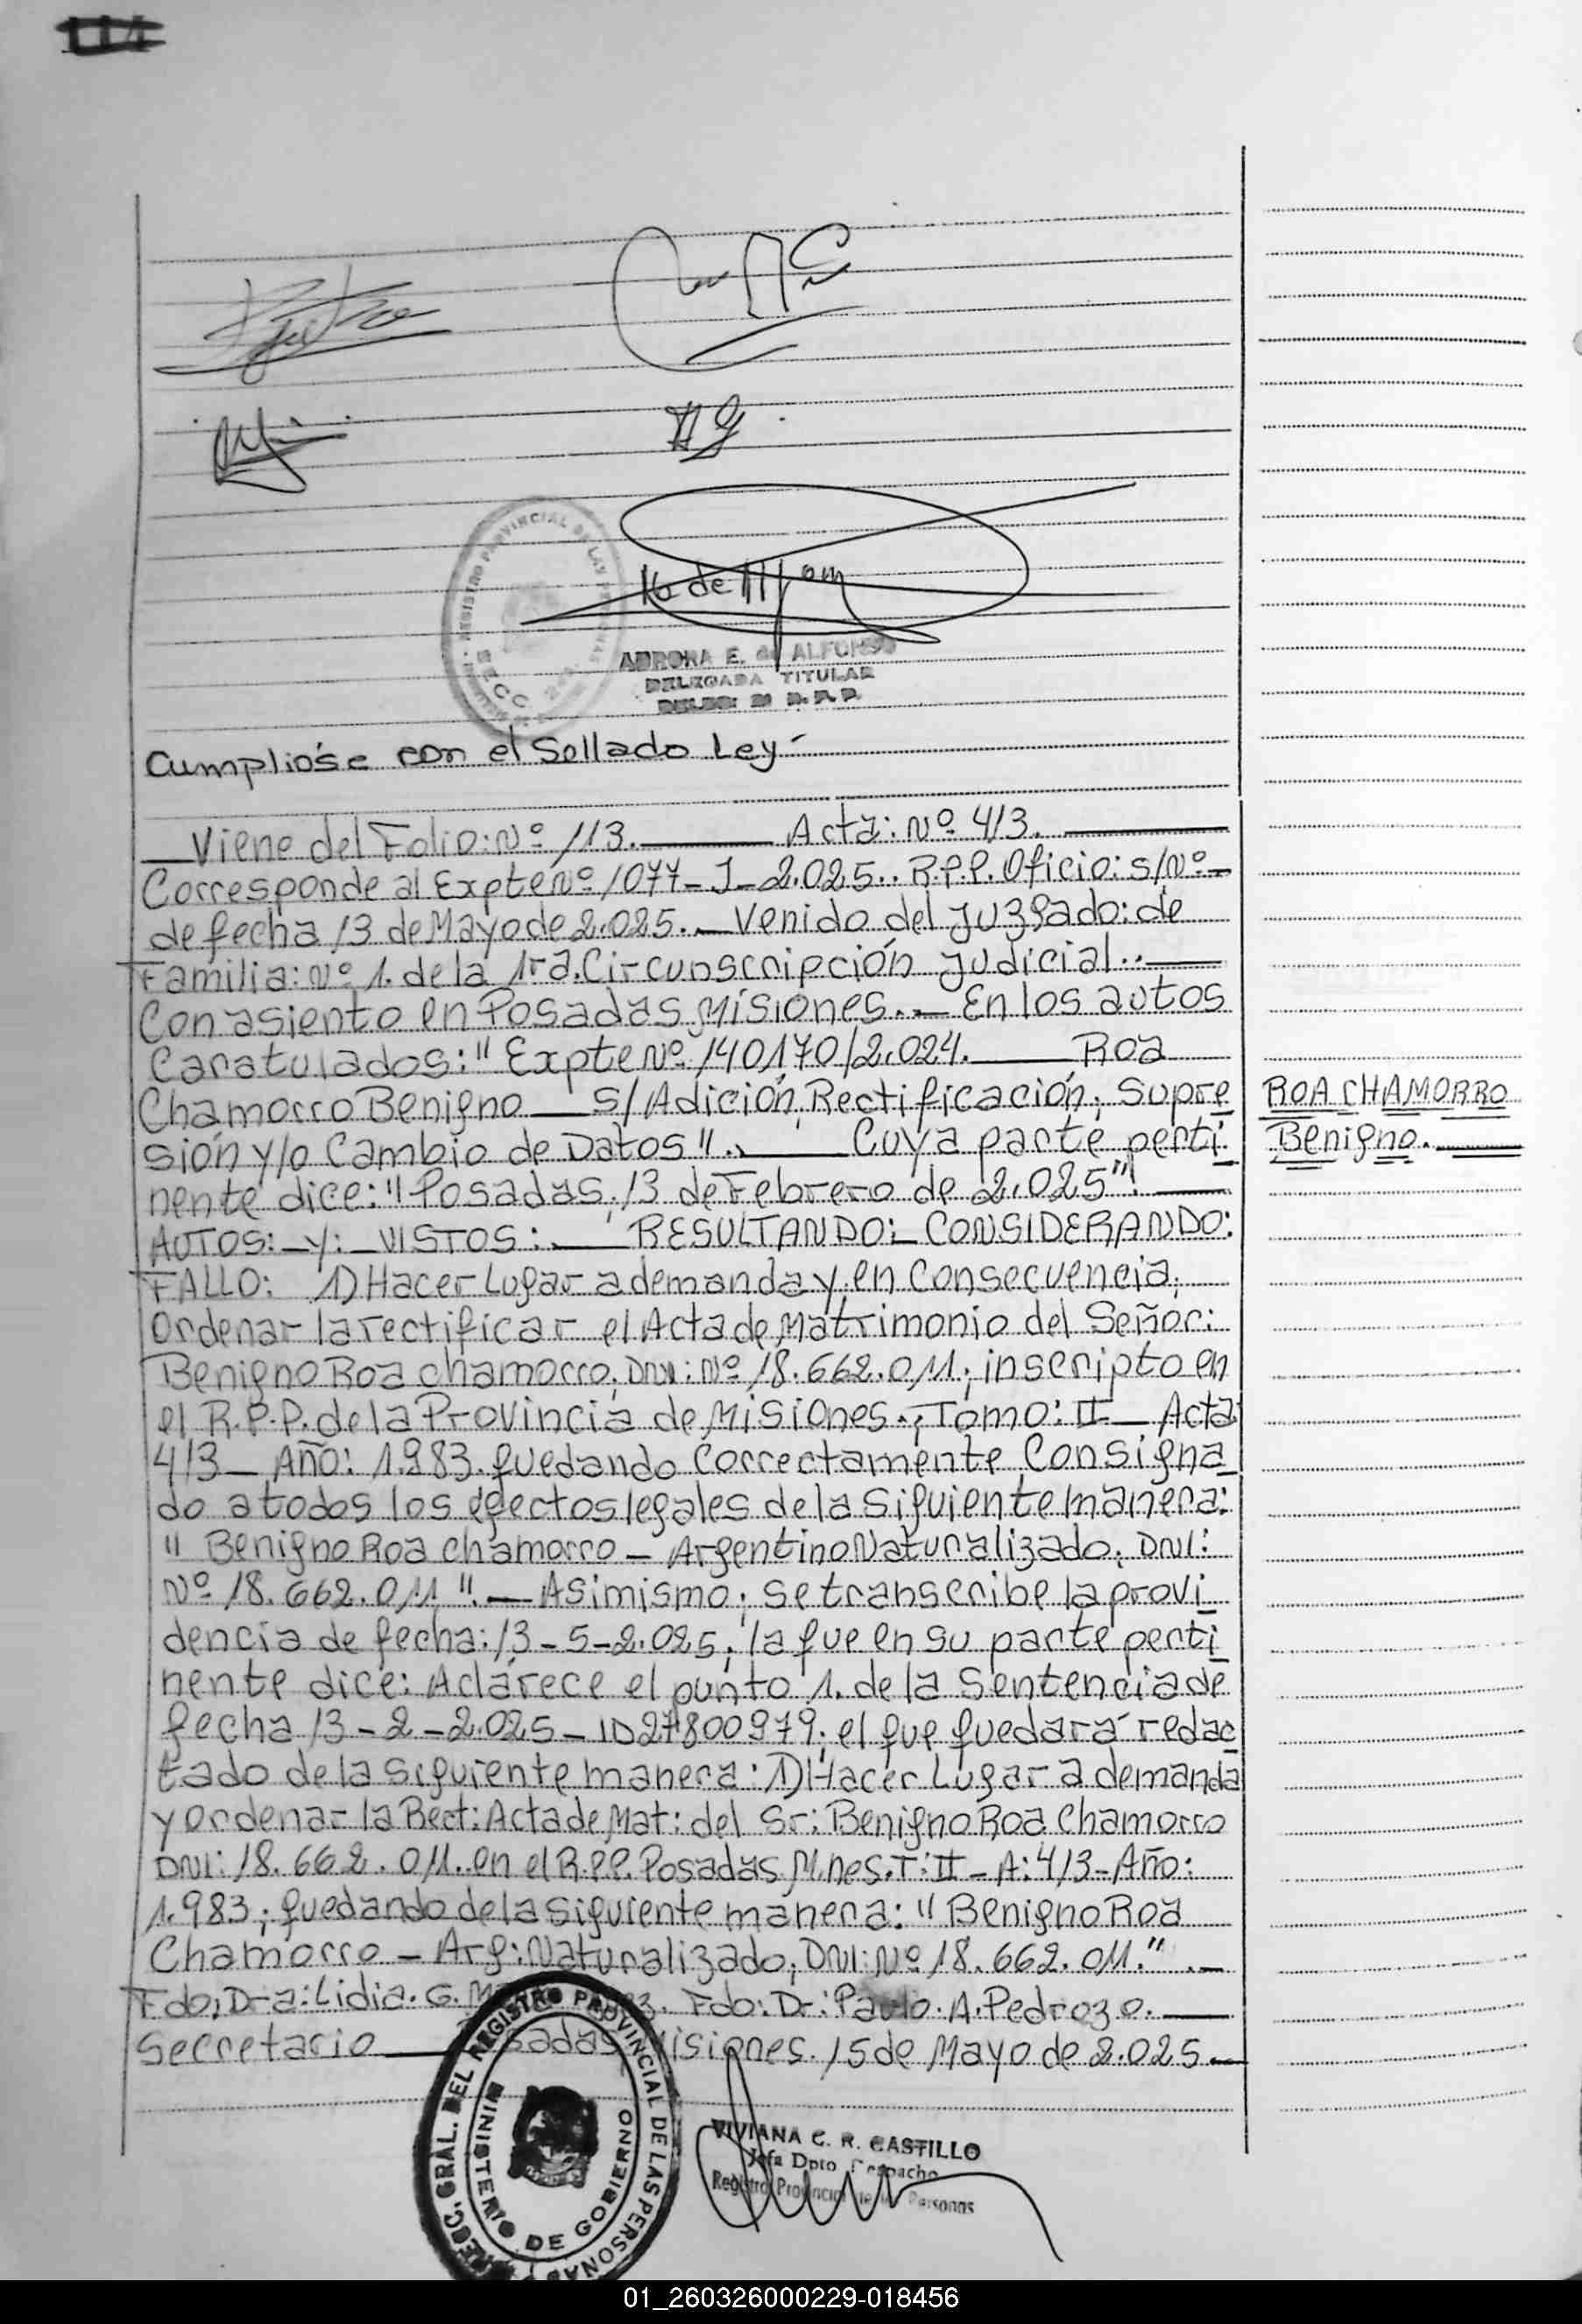 114
16 de Alfom
REGISTRO PROVINCIAL DE LAS PERSONAS
SECC
AURORA E. de ALFONSO
DELEGADA TITULAR
DELEG: 21 R. P. P.
Cumplióse con el Sellado Ley-
Viene del Folio: Nº 113. Acta: Nº 413.
Corresponde al Expte Nº 1077-J-2.025.. R.P.P. Oficio: S/Nº-
de fecha 13 de Mayo de 2.025.- Venido del Juzgado: de
Familia: Nº 1. de la 1ra. Circunscripción Judicial..
Con asiento en Posadas Misiones.- En los autos
Caratulados: " Expte Nº 140170/2.024. Roa
Chamorro Benigno S/Adición, Rectificación, Supre
sión y/o Cambio de Datos ". Cuya parte perti
nente dice: "Posadas, 13 de Febrero de 2.025".
AUTOS: Y: VISTOS: RESULTANDO: CONSIDERANDO:
FALLO: 1) Hacer Lugar a demanda y, en Consecuencia,
Ordenar la rectificar el Acta de Matrimonio del Señor:
Benigno Roa Chamorro, DNI: Nº 18.662.011; inscripto en
el R.P.P. de la Provincia de Misiones., Tomo: II- Acta
413- Año: 1.983. quedando Correctamente Consigna
do a todos los efectos legales de la Siguiente manera:
" Benigno Roa Chamorro - Argentino Naturalizado, DNI:
Nº 18.662.011 ".- Asimismo, se transcribe la provi
dencia de fecha: 13-5-2.025, la que en su parte perti
nente dice: Aclárece el punto 1. de la Sentencia de
fecha 13-2-2.025- ID27800979; el que quedará redac
tado de la Siguiente manera: 1) Hacer Lugar a demanda
y ordenar la Rect: Acta de Mat: del Sr: Benigno Roa Chamorro
DNI: 18.662.011. en el R.P.P. Posadas Mnes. T: II- A: 413- Año:
1.983; quedando de la siguiente manera: "Benigno Roa
Chamorro - Arg: Naturalizado, DNI: Nº 18.662.011." .-
Fdo; Dra: Lidia. G. Fdo: Dr: Paulo. A. Pedrozo.
Secretario Posadas Misiones. 15 de Mayo de 2.025-
ROA CHAMORRO
Benigno.
DIREC. GRAL. DEL REGISTRO PROVINCIAL DE LAS PERSONAS
MINISTERIO DE GOBIERNO
VIVIANA C. R. CASTILLO
Jefa Dpto Despacho
Registro Provincial de las Personas
01_260326000229-018456